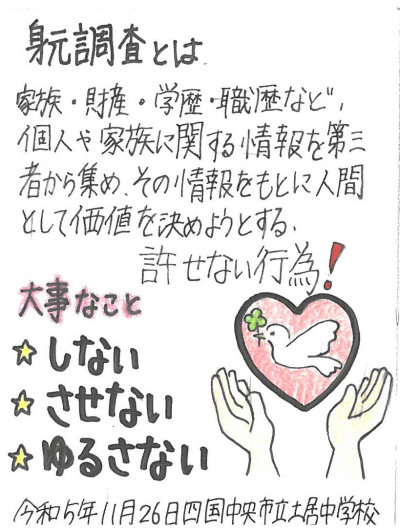 身元調査とは
家族・財産・学歴・職歴など、
個人や家族に関する情報を第三
者から集め、その情報をもとに人間
として価値を決めようとする、
許せない行為!
大事なこと
しない
させない
ゆるさない
令和5年11月26日四国中央市立土居中学校